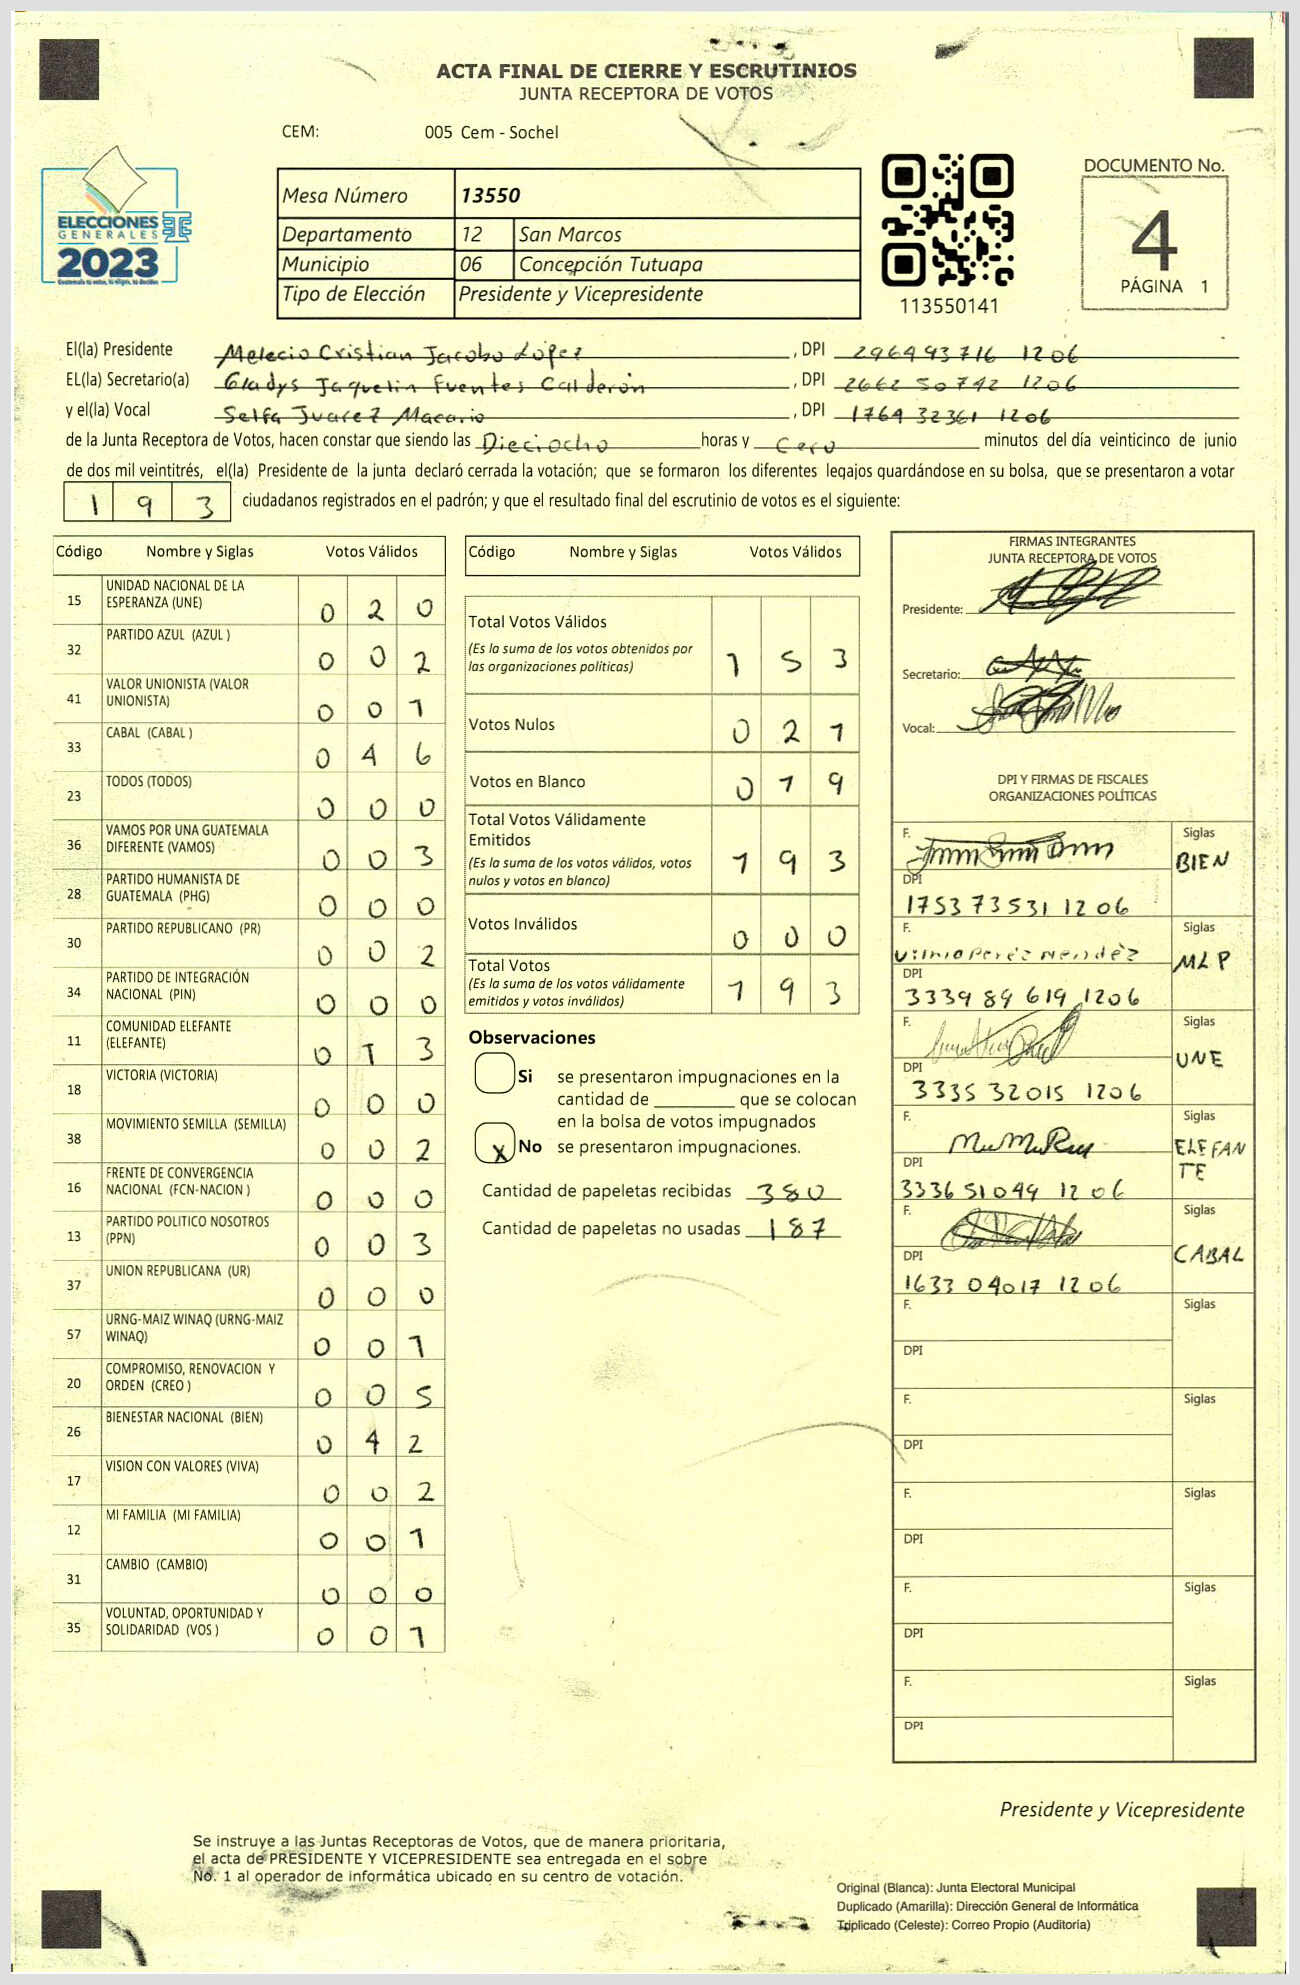 ACTA FINAL DE CIERRE Y ESCRUTINIOS
JUNTA RECEPTORA DE VOTOS
CEM: 005 Cem - Sochel
ELECCIONES
GENERALES
2023
Mesa Número 13550
Departamento 12 San Marcos
Municipio 06 Concepción Tutuapa
Tipo de Elección Presidente y Vicepresidente
113550141
DOCUMENTO No.
4
PÁGINA 1
El(la) Presidente Melecio Cristian Jacobo López , DPI 296493716 1206
EL(la) Secretario(a) Gladys Jaquelin Fuentes Calderón , DPI 2662 50742 1206
y el(la) Vocal Selfa Juarez Macario , DPI 1764 32361 1206
de la Junta Receptora de Votos, hacen constar que siendo las Dieciocho horas y Cero minutos del día veinticinco de junio
de dos mil veintitrés, el(la) Presidente de la junta declaró cerrada la votación; que se formaron los diferentes legajos quardándose en su bolsa, que se presentaron a votar
193 ciudadanos registrados en el padrón; y que el resultado final del escrutinio de votos es el siguiente:
Código Nombre y Siglas Votos Válidos
15 UNIDAD NACIONAL DE LA
ESPERANZA (UNE) 0 2 0
32 PARTIDO AZUL (AZUL ) 0 0 2
41 VALOR UNIONISTA (VALOR
UNIONISTA) 0 0 1
33 CABAL (CABAL ) 0 4 6
23 TODOS (TODOS) 0 0 0
36 VAMOS POR UNA GUATEMALA
DIFERENTE (VAMOS) 0 0 3
28 PARTIDO HUMANISTA DE
GUATEMALA (PHG) 0 0 0
30 PARTIDO REPUBLICANO (PR) 0 0 2
34 PARTIDO DE INTEGRACIÓN
NACIONAL (PIN) 0 0 0
11 COMUNIDAD ELEFANTE
(ELEFANTE) 0 1 3
18 VICTORIA (VICTORIA) 0 0 0
38 MOVIMIENTO SEMILLA (SEMILLA) 0 0 2
16 FRENTE DE CONVERGENCIA
NACIONAL (FCN-NACION ) 0 0 0
13 PARTIDO POLITICO NOSOTROS
(PPN) 0 0 3
37 UNION REPUBLICANA (UR) 0 0 0
57 URNG-MAIZ WINAQ (URNG-MAIZ
WINAQ) 0 0 1
20 COMPROMISO, RENOVACION Y
ORDEN (CREO ) 0 0 5
26 BIENESTAR NACIONAL (BIEN) 0 4 2
17 VISION CON VALORES (VIVA) 0 0 2
12 MI FAMILIA (MI FAMILIA) 0 0 1
31 CAMBIO (CAMBIO) 0 0 0
35 VOLUNTAD, OPORTUNIDAD Y
SOLIDARIDAD (VOS ) 0 0 1
Código Nombre y Siglas Votos Válidos
Total Votos Válidos
(Es la suma de los votos obtenidos por
las organizaciones políticas) 1 5 3
Votos Nulos 0 2 1
Votos en Blanco 0 1 9
Total Votos Válidamente
Emitidos
(Es la suma de los votos válidos, votos
nulos y votos en blanco) 1 9 3
Votos Inválidos 0 0 0
Total Votos
(Es la suma de los votos válidamente
emitidos y votos inválidos) 1 9 3
Observaciones
Si se presentaron impugnaciones en la
cantidad de ________ que se colocan
en la bolsa de votos impugnados
X No se presentaron impugnaciones.
Cantidad de papeletas recibidas 380
Cantidad de papeletas no usadas 187
FIRMAS INTEGRANTES
JUNTA RECEPTORA DE VOTOS
Presidente:
Secretario:
Vocal:
DPI Y FIRMAS DE FISCALES
ORGANIZACIONES POLÍTICAS
F. Siglas
BIEN
DPI
1753 73531 1206
F. Siglas
Vilma Peréz Mendéz MLP
DPI
3339 89 619 1206
F. Siglas
UNE
DPI
3335 32015 1206
F. Siglas
ELEFAN
TE
DPI
3336 51049 1206
F. Siglas
CABAL
DPI
1633 04017 1206
F. Siglas
DPI
F. Siglas
DPI
F. Siglas
DPI
F. Siglas
DPI
F. Siglas
DPI
Presidente y Vicepresidente
Se instruye a las Juntas Receptoras de Votos, que de manera prioritaria,
el acta de PRESIDENTE Y VICEPRESIDENTE sea entregada en el sobre
No. 1 al operador de informática ubicado en su centro de votación.
Original (Blanca): Junta Electoral Municipal
Duplicado (Amarilla): Dirección General de Informática
Triplicado (Celeste): Correo Propio (Auditoría)